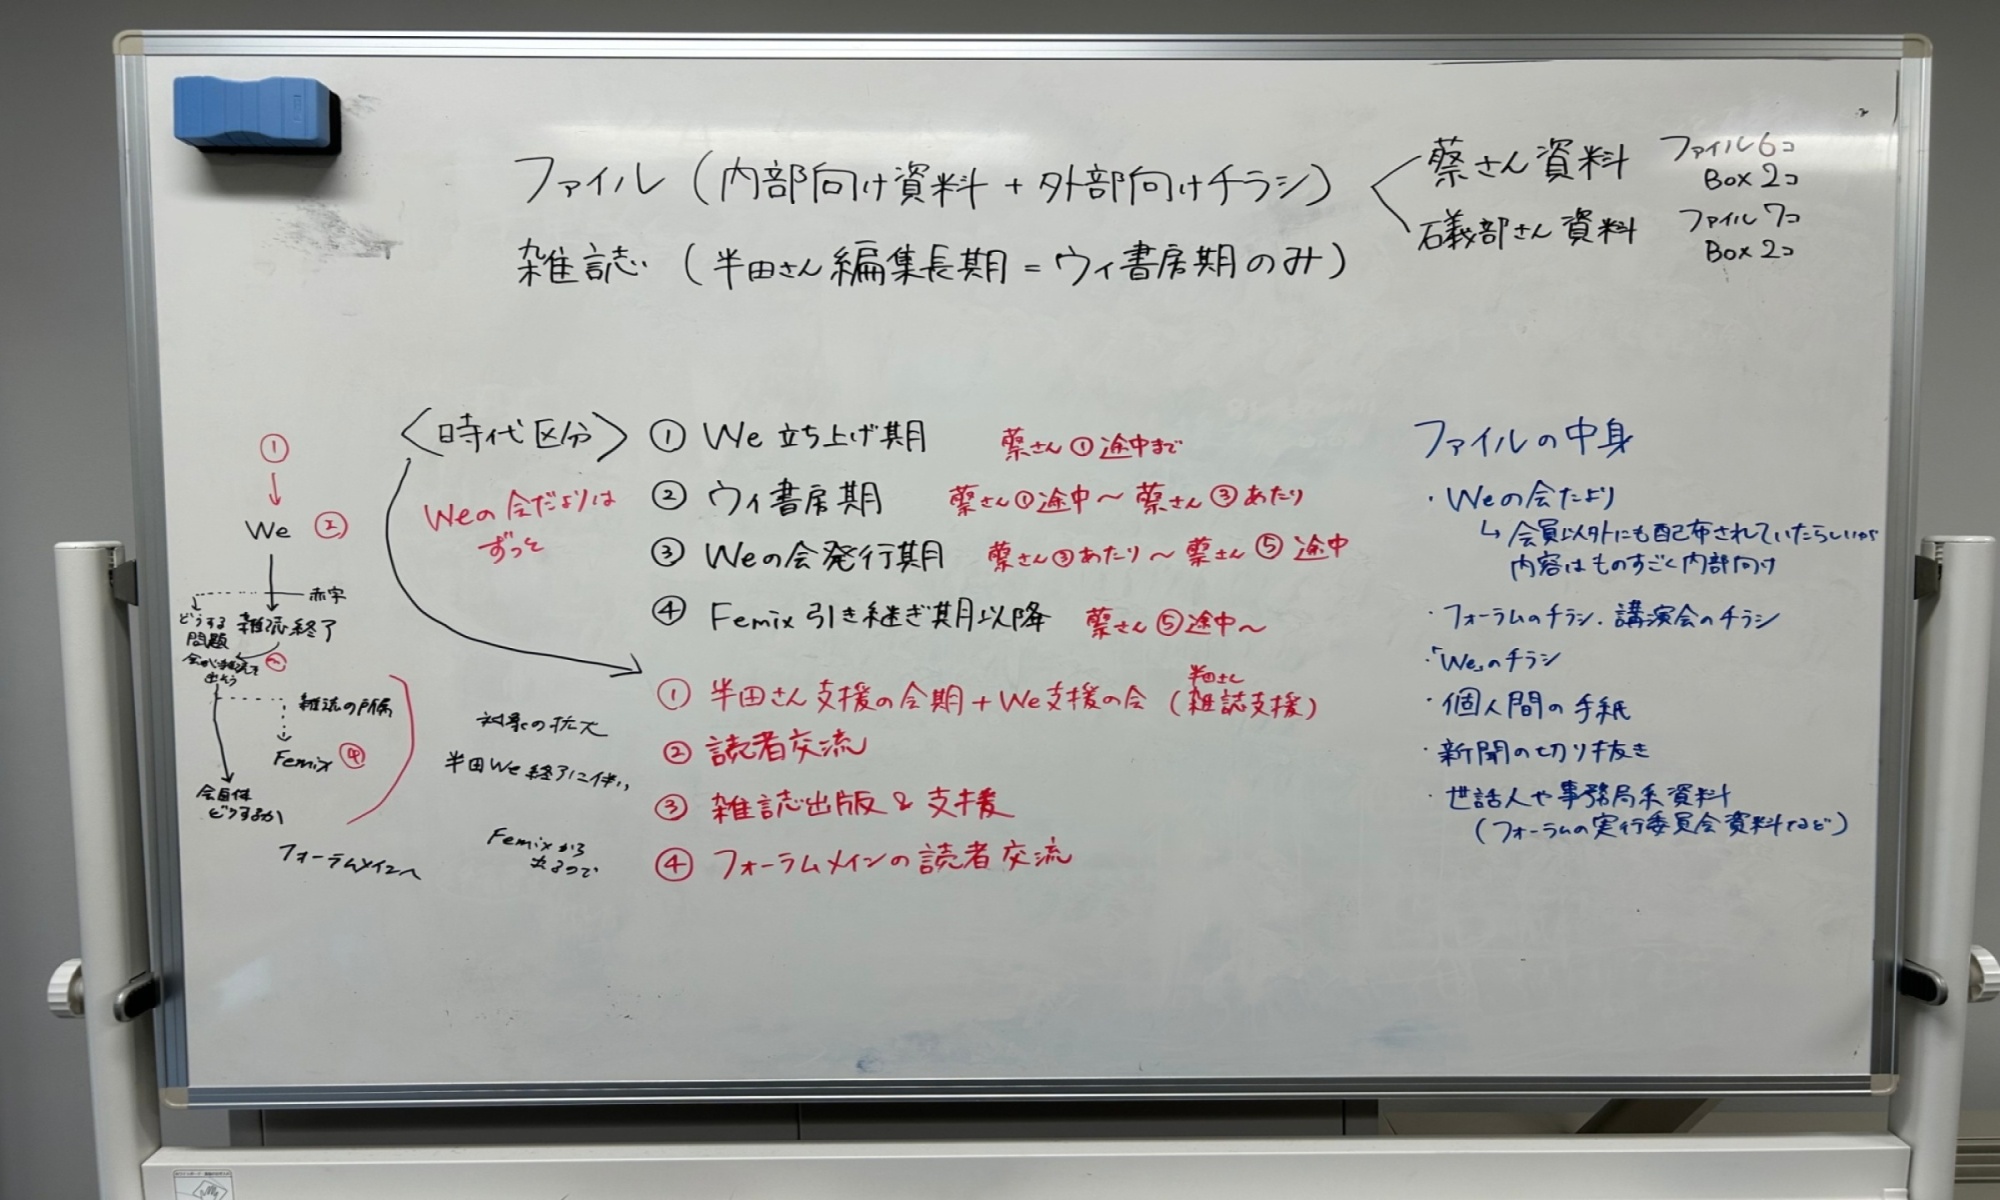 ファイル（内部向け資料 + 外部向けチラシ）
雑誌（半田さん編集長期 = ウィ書房期のみ）
蔡さん資料 ファイル6コ
Box 2コ
礒部さん資料 ファイル7コ
Box 2コ
①
We ②
赤字
どうする
問題
雑誌終了
会が雑誌を
出そう
雑誌の所属
Femix ④
会自体
どうするか
フォーラムメインへ
〈時代区分〉
Weの会だよりは
ずっと
① We 立ち上げ期 蔡さん①途中まで
② ウィ書房期 蔡さん①途中～蔡さん③あたり
③ Weの会発行期 蔡さん③あたり～蔡さん⑤途中
④ Femix引き継ぎ期以降 蔡さん⑤途中～
半田さん
① 半田さん支援の会期 + We支援の会（雑誌支援）
対象の拡大
② 読者交流
半田We終了に伴い
③ 雑誌出版 & 支援
Femixから
出るので
④ フォーラムメインの読者交流
ファイルの中身
・Weの会だより
↳ 会員以外にも配布されていたらしいが
内容はものすごく内部向け
・フォーラムのチラシ・講演会のチラシ
・「We」のチラシ
・個人間の手紙
・新聞の切り抜き
・世話人や事務局系資料
（フォーラムの実行委員会資料など）